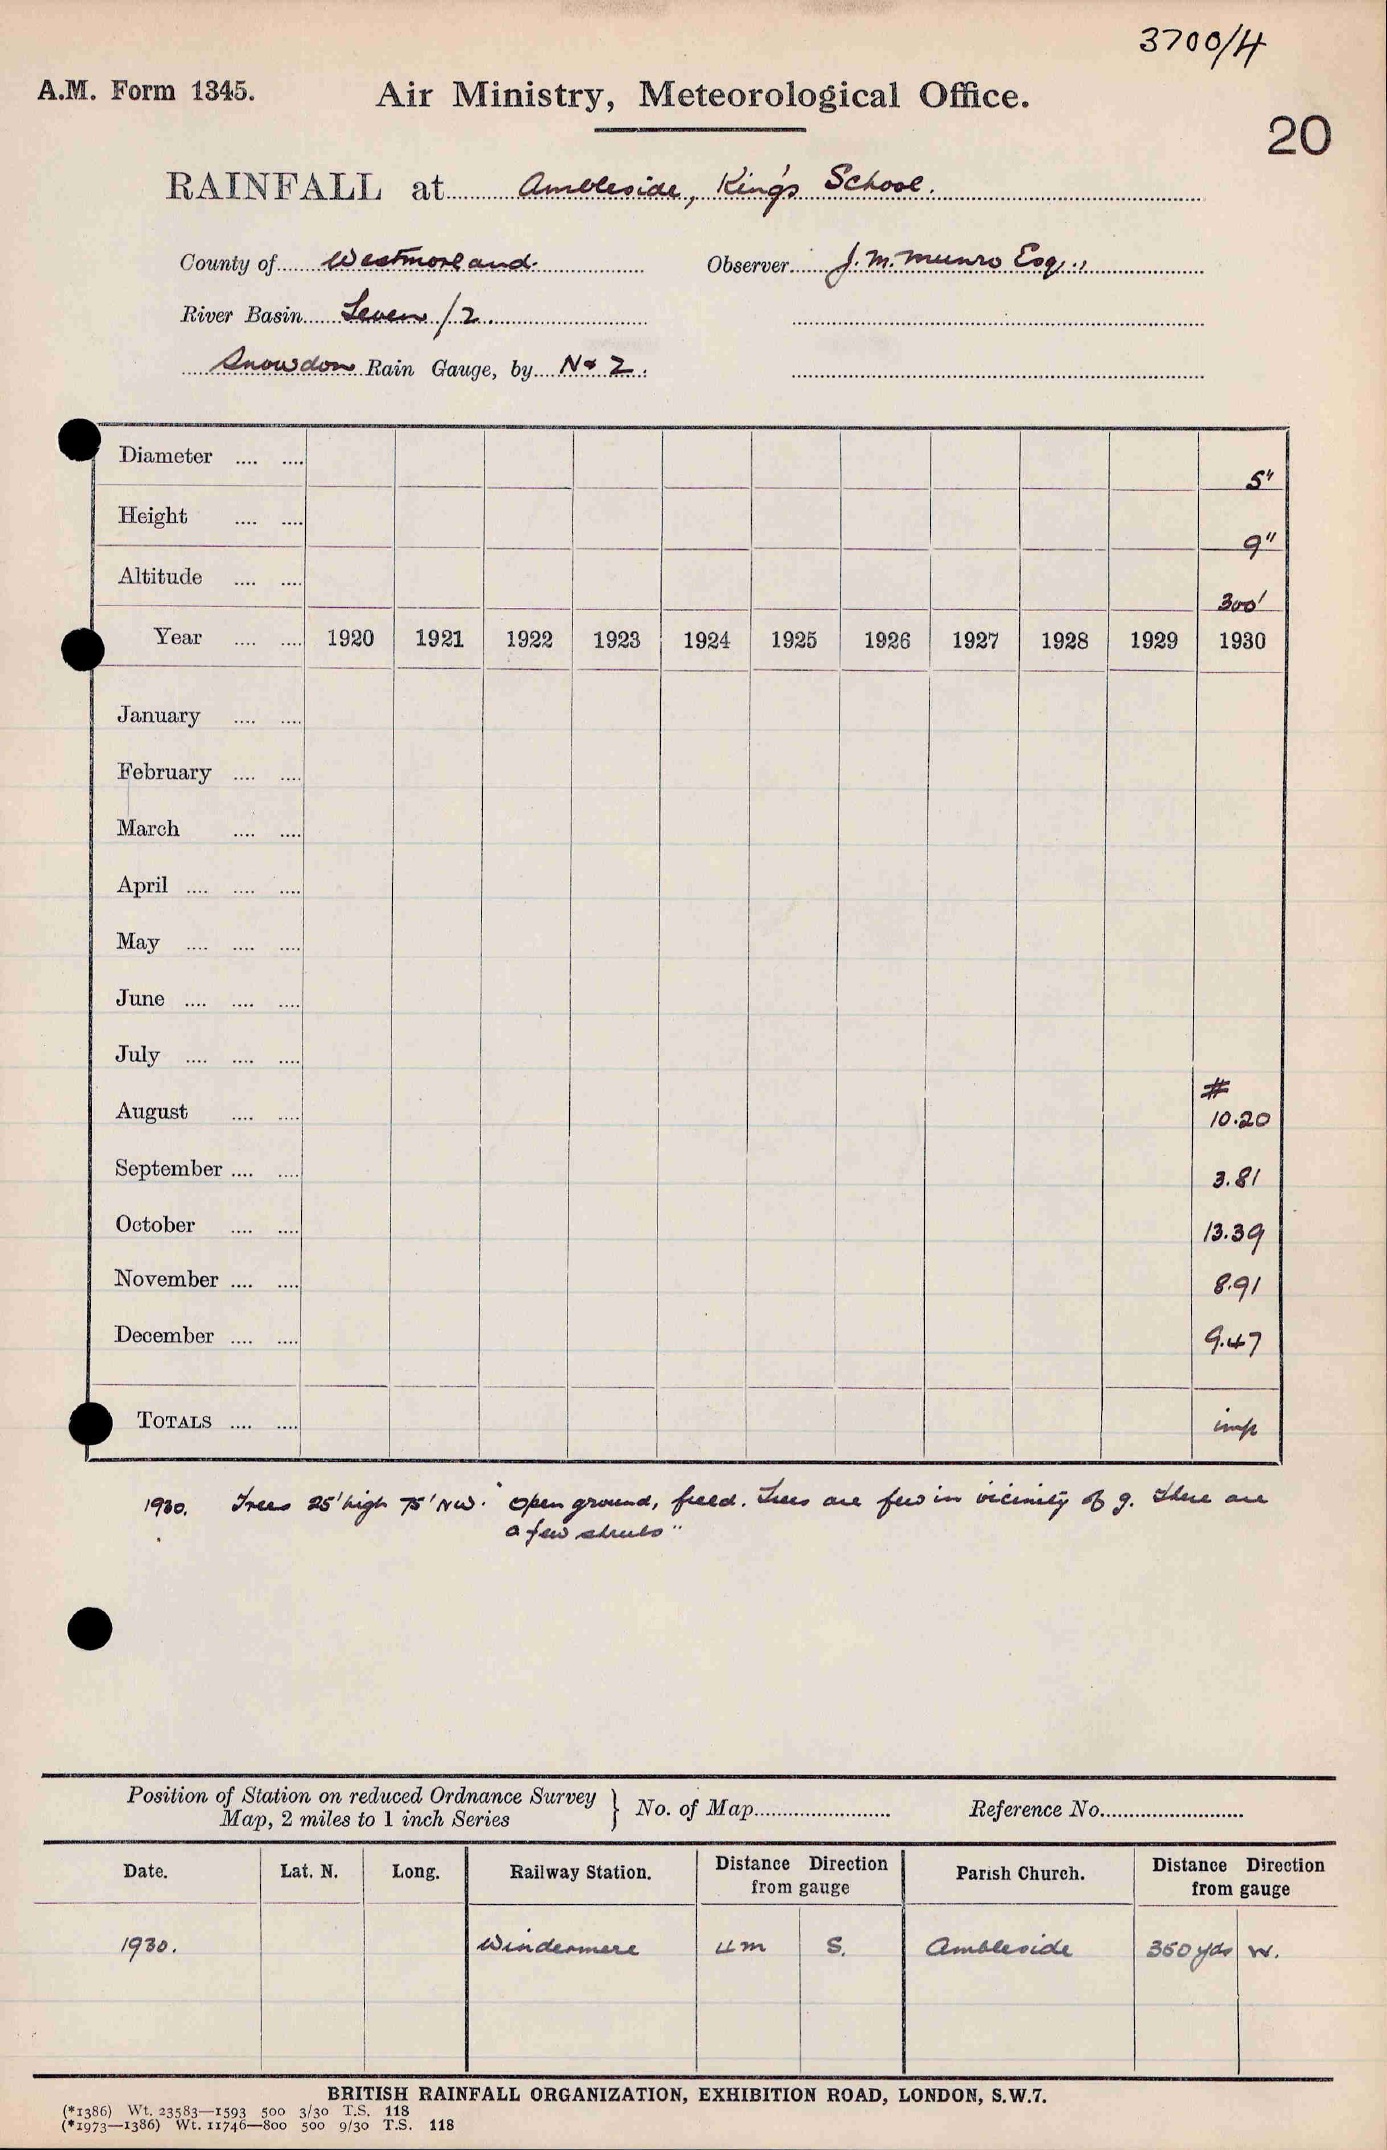 3700/4
A.M. Form 1345.
Air Ministry, Meteorological Office.
20
RAINFALL at Ambleside, King's School.
County of Westmorland. Observer J. M. Munro Esq.,
River Basin Leven /2
Snowdon Rain Gauge, by N & Z.
Diameter .... .... 5"
Height .... .... 9"
Altitude .... .... 300'
Year .... .... 1920 1921 1922 1923 1924 1925 1926 1927 1928 1929 1930
January .... ....
February .... ....
March .... ....
April .... .... ....
May .... .... ....
June .... .... ....
July .... .... ....
#
August .... .... 10.20
September .... .... 3.81
October .... .... 13.39
November .... .... 8.91
December .... .... 9.47
TOTALS .... .... imp
1930. Trees 25' high 75' NW. "Open ground, field. Trees are few in vicinity of g. There are
a few shrubs"
Position of Station on reduced Ordnance Survey
Map, 2 miles to 1 inch Series } No. of Map Reference No.
Date. Lat. N. Long. Railway Station. Distance Direction from gauge Parish Church. Distance Direction from gauge
1930. Windermere 4m S. Ambleside 350 yds W.
BRITISH RAINFALL ORGANIZATION, EXHIBITION ROAD, LONDON, S.W.7.
(*1386) Wt. 23583—1593 500 3/30 T.S. 118
(*1973—1386) Wt. 11746—800 500 9/30 T.S. 118